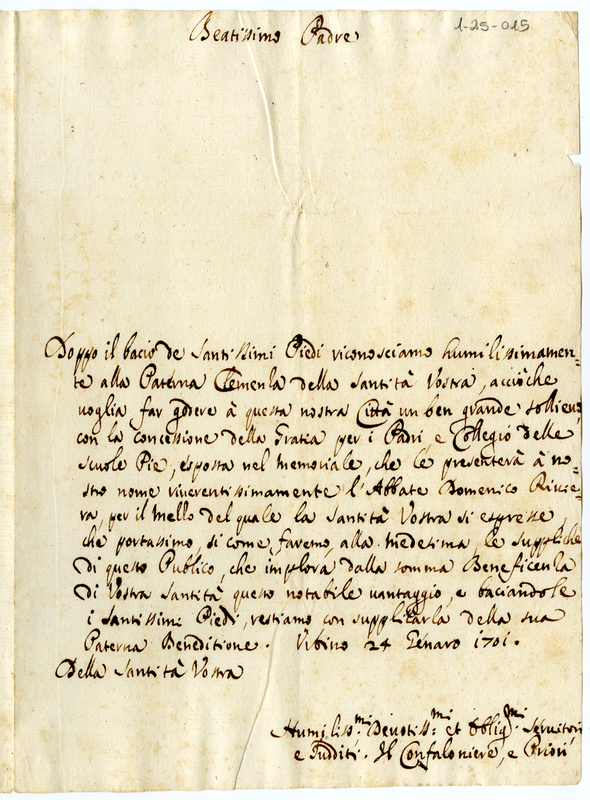 Beatissimo Padre
1-25-015
Doppo il bacio de Santissimi Piedi riconosciamo humilissimamen=
te alla Paterna Clemenza della Santità Vostra, acciò che
voglia far godere à questa nostra Città un ben grande sollievo
con la concessione della Gratia per i Padri, e Collegio delle
Scuole Pie, esposta nel memoriale, che le presenterà à no=
stro nome riverentissimamente l'Abbate Domenico Rivie=
ra, per il mezzo del quale la Santità Vostra si espresse
che portassimo, si come faremo, alla medesima le suppliche
di questo Publico, che implora dalla somma Beneficenza
di Vostra Santità questo notabile vantaggio, e baciandole
i Santissimi Piedi, restiamo con supplicarla della sua
Paterna Beneditione. Urbino 24 Genaro 1701.
Della Santità Vostra
Humiliss.mi Devotiss.mi et Oblig.mi Servitori
e Sudditi. Il Confaloniere, e Priori